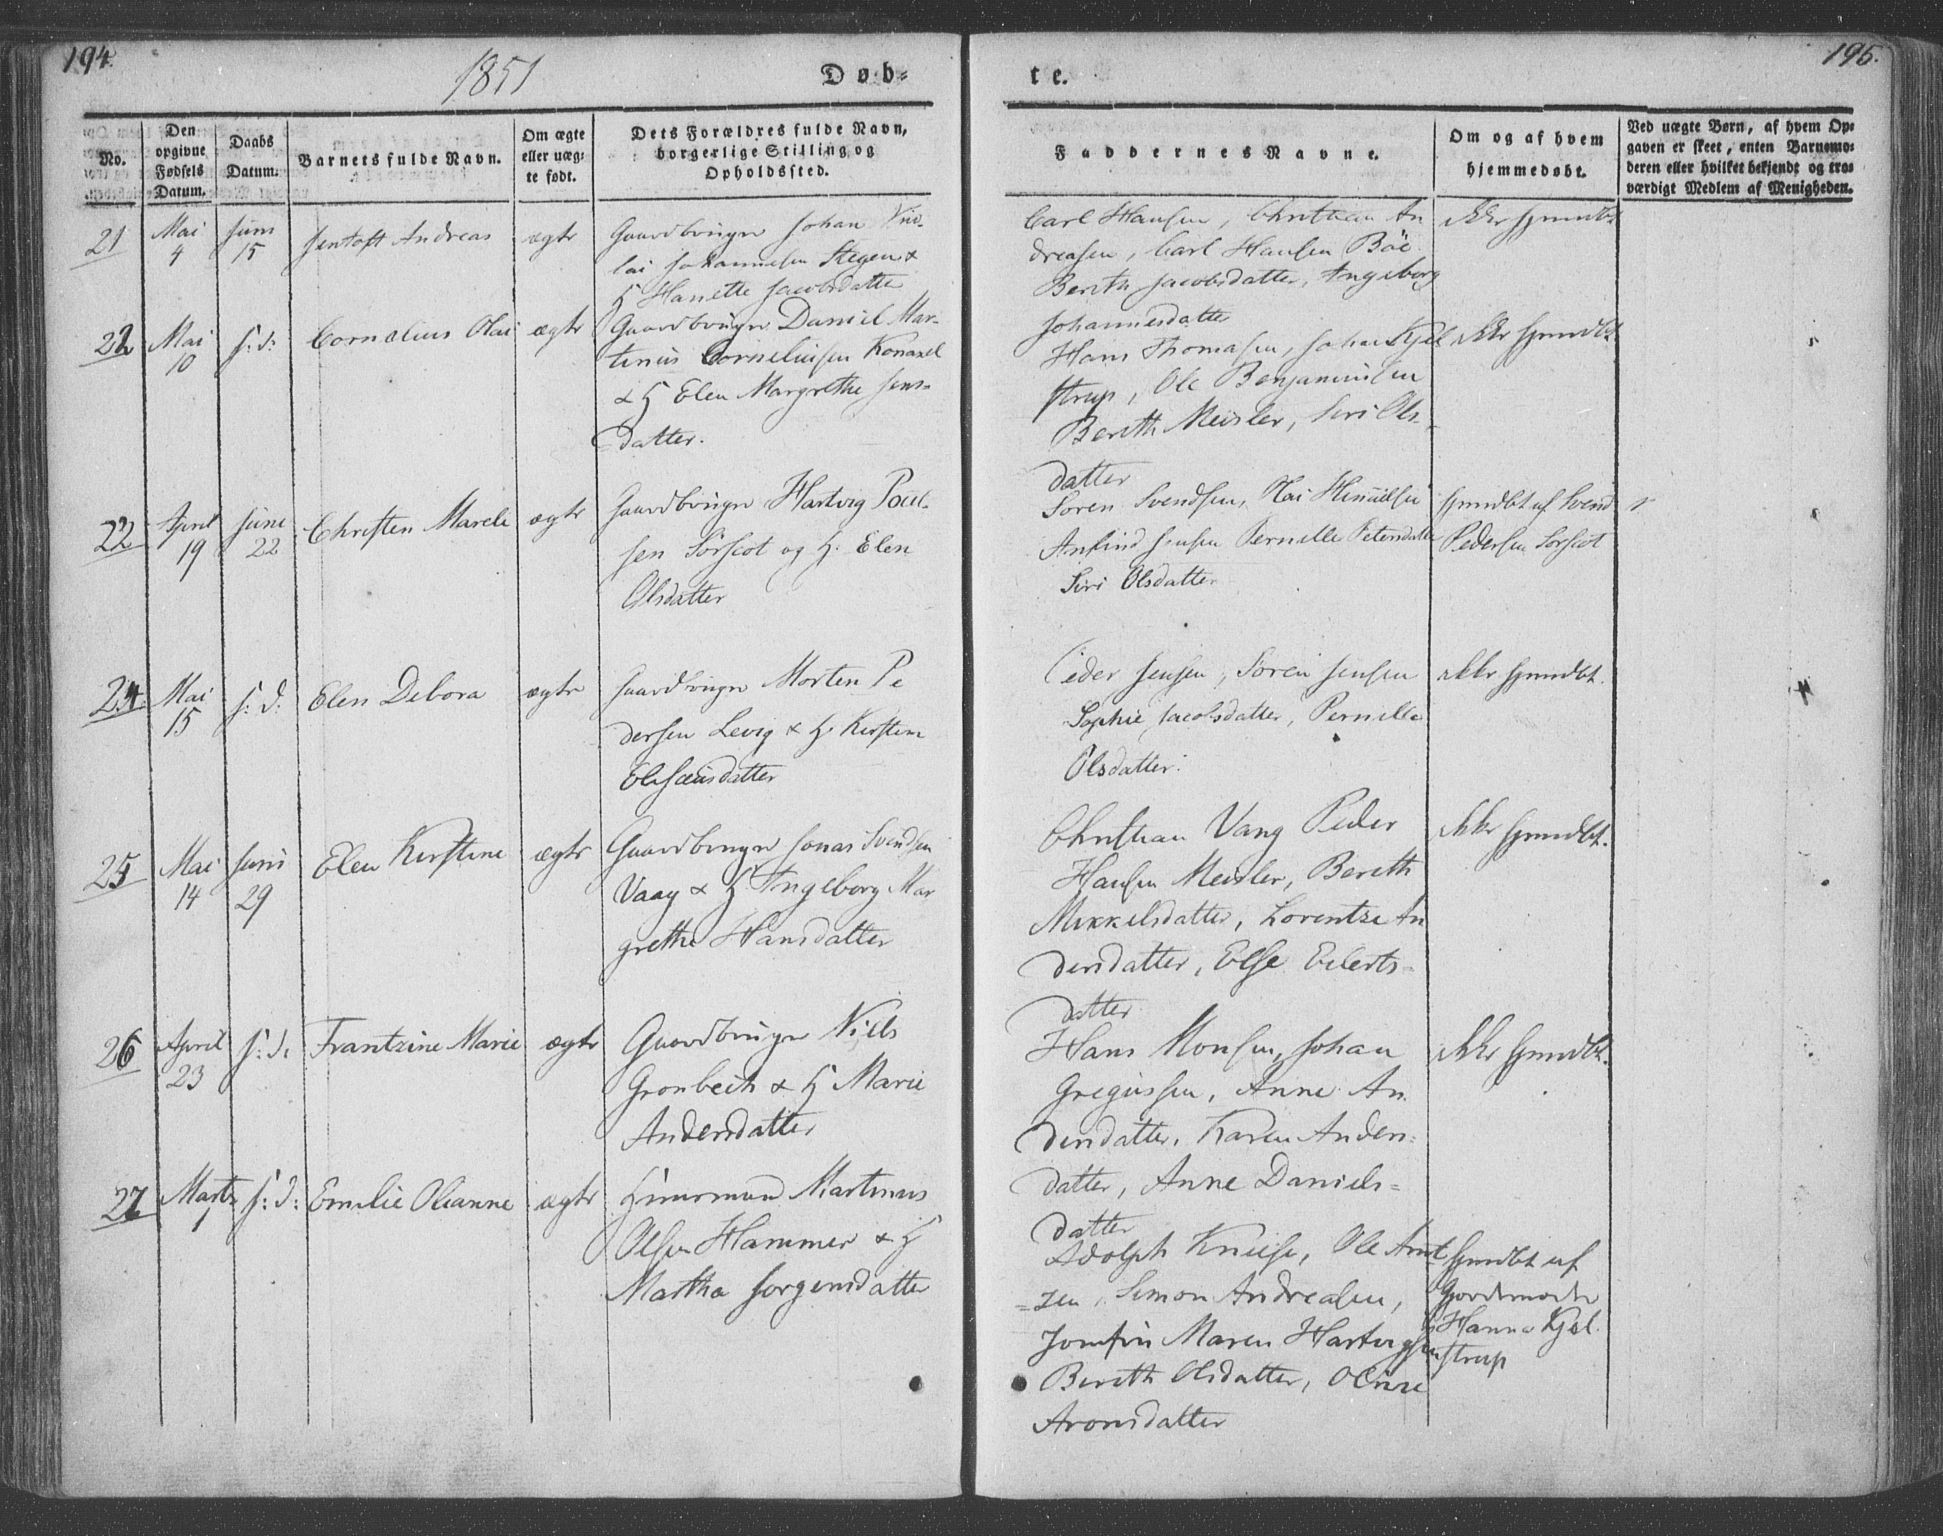 194.
1851
Døb-
te.
195.
No.
Den opgivne Fødsels Datum.
Daabs Datum.
Barnets fulde Navn.
Om ægte eller uæg- te født.
Dets Forældres fulde Navn, borgerlige Stilling og Opholdssted.
Faddernes Navne.
Om og af hvem hjemmedøbt.
Ved uægte Børn, af hvem Op- gaven er skeet, enten Barnemo- deren eller hvilket bekjendt og tro- værdigt Medlem af Menigheden.
21
Mai 4
Juni 15
Jentoft Andreas
ægte
Gaardbruger Johan Nic-
lai Johannesen Stegen &
H Hanette Jacobsdatter
Carl Hansen, Christian An
dreasen, Carl Hansen Böe
Bereth Jacobsdatter, Ingeborg
Johannesdatter
Ikke hjemdbt
22
Mai 10
s: d:
Cornelius Olai
ægte
Gaardbruger Daniel Mar-
tinus Corneliusen
& H Elen Margrethe Jens-
datter.
Hans Thomasen, Johan Kjel
strup, Ole Benjaminsen
Bereth Meisler, Siri Ols-
datter
Ikke hjemdbt.
22
April 19
Juni 22
Christen Marele
ægte
Gaardbruger Hartvig Poul-
sen Sörscot og H. Elen
Olsdatter
Sören Svendsen, Olai
Anfind Jensen Pernille Petersdatter
Siri Olsdatter
hjemdbt af Svend
Pedersen Sorscot
24.
Mai 15
s: d:
Elen Debora
ægte
Gaardbruger Morten Pe
dersen Levig & H. Kirstine
Elisæusdatter
Peder Jensen, Sören Jensen
Sophie Jacobsdatter, Pernille
Olsdatter.
Ikke hjemdbt.
25
Mai 14
Juni 29
Elen Kirstine
ægte
Gaardbruger Jonas Svendsen
Vaag & H Ingeborg Mar
grethe Hansdatter
Christian Vang Peder
Hansen Meisler, Bereth
Mikkelsdatter, Lorentze An
dersdatter, Else Eilerts-
datter
Ikke hjemdbt.
26
April 23
s: d:
Frantzine Marie
ægte
Gaardbruger Niels
Gronbech & H Marie
Andersdatter
Hans Monsen, Johan
Gregussen, Anne An
dersdatter, Karen Anders-
datter, Anne Daniels-
datter
Ikke hjemdbt.
27
Marts 1
s: d:
Emilie Olianne
ægte
Huusmand Martinus
Olsen Hammer & H
Martha Jorgensdatter
Adolph Kruse, Ole Arnt
-zen, Simon Andreasen,
Jomfru Maren Hartvigsen
Bereth Olsdatter, Oline
Aronsdatter
hjemdbt af
Gjordemoder
Hanna Kjel
strup